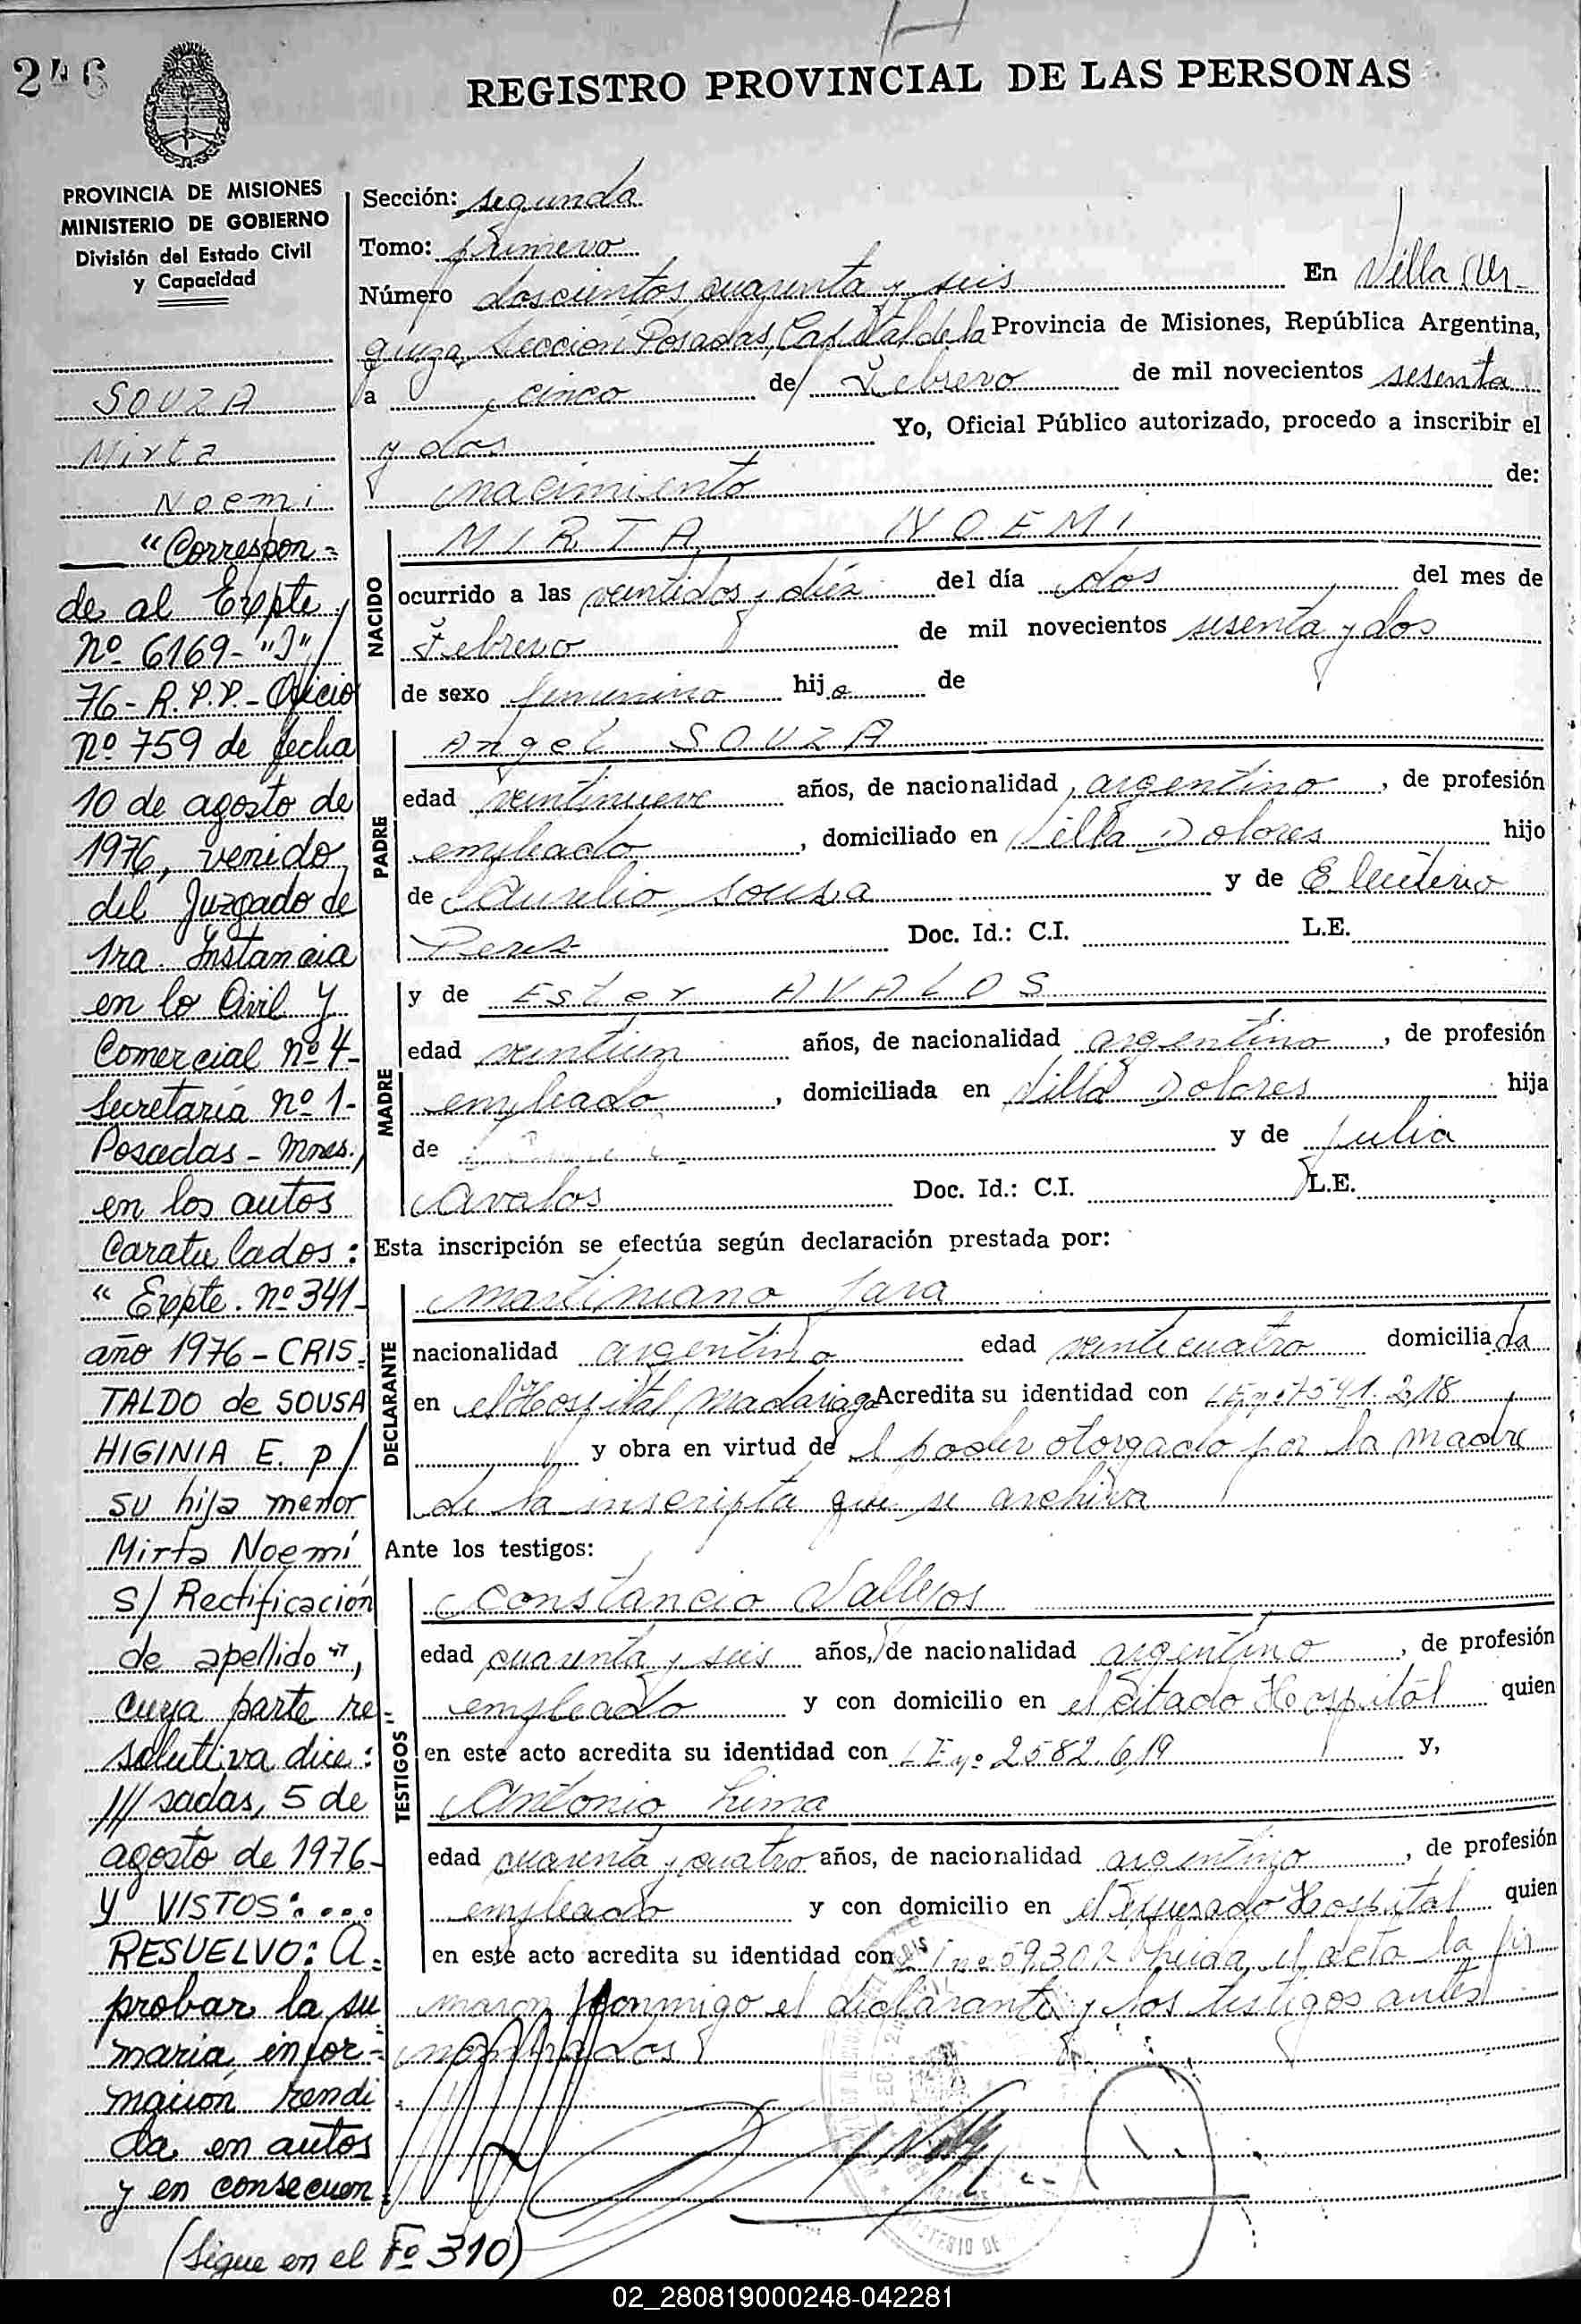 246
REGISTRO PROVINCIAL DE LAS PERSONAS
PROVINCIA DE MISIONES
MINISTERIO DE GOBIERNO
División del Estado Civil
y Capacidad
SOUZA
Mirta
Noemi
"Correspon=
de al Expte
nº 6169-"J"/
76-R.P.P.-Oficio
nº 759 de fecha
10 de agosto de
1976, venido
del Juzgado de
1ra. Instancia
en lo Civil y
Comercial nº 4-
Secretaría nº 1-
Posadas - Mnes.,
en los autos
Caratulados:
"Expte. nº 341-
año 1976-CRIS=
TALDO de SOUSA
HIGINIA E. p/
su hija menor
Mirta Noemí
S/ Rectificación
de apellido",
cuya parte re=
solutiva dice:
///sadas, 5 de
agosto de 1976-
Y VISTOS:....
RESUELVO: A=
probar la su=
maria infor=
mación rendi
da en autos
y en consecuen=
(Sigue en el Fº 310)
Sección: segunda
Tomo: primero
Número doscientos cuarenta y seis En Villa Ur-
quiza, Sección Posadas, Capital de la Provincia de Misiones, República Argentina,
a cinco de Febrero de mil novecientos sesenta
y dos Yo, Oficial Público autorizado, procedo a inscribir el
nacimiento de:
NACIDO
MIRTA NOEMI
ocurrido a las veintidos y diéz del día dos del mes de
Febrero de mil novecientos sesenta y dos
de sexo femenino hija de
PADRE
Angel SOUZA
edad veintinueve años, de nacionalidad argentino, de profesión
empleado, domiciliado en Villa Dolores hijo
de Aurelio Sousa y de Eleuterio
Perez Doc. Id.: C.I. L.E.
MADRE
y de Ester AVALOS
edad veintiun años, de nacionalidad argentino, de profesión
empleado, domiciliada en Villa Dolores hija
de y de Julia
Avalos Doc. Id.: C.I. L.E.
Esta inscripción se efectúa según declaración prestada por:
DECLARANTE
Martiniano Jara
nacionalidad argentino edad veinticuatro domiciliada
en el Hospital Madariaga Acredita su identidad con LE nº 7541.218
y obra en virtud del poder otorgado por la madre
de la inscripta que se archiva
Ante los testigos:
TESTIGOS
Constancio Vallejos
edad cuarenta y seis años, de nacionalidad argentino, de profesión
empleado y con domicilio en el citado Hospital quien
en este acto acredita su identidad con LE nº 2582.619 y,
Antonio Lima
edad cuarenta y cuatro años, de nacionalidad argentino, de profesión
empleado y con domicilio en el expresado Hospital quien
en este acto acredita su identidad con Leida el acta la fir
maron conmigo el declarante y los testigos antes
nombrados
02_280819000248-042281